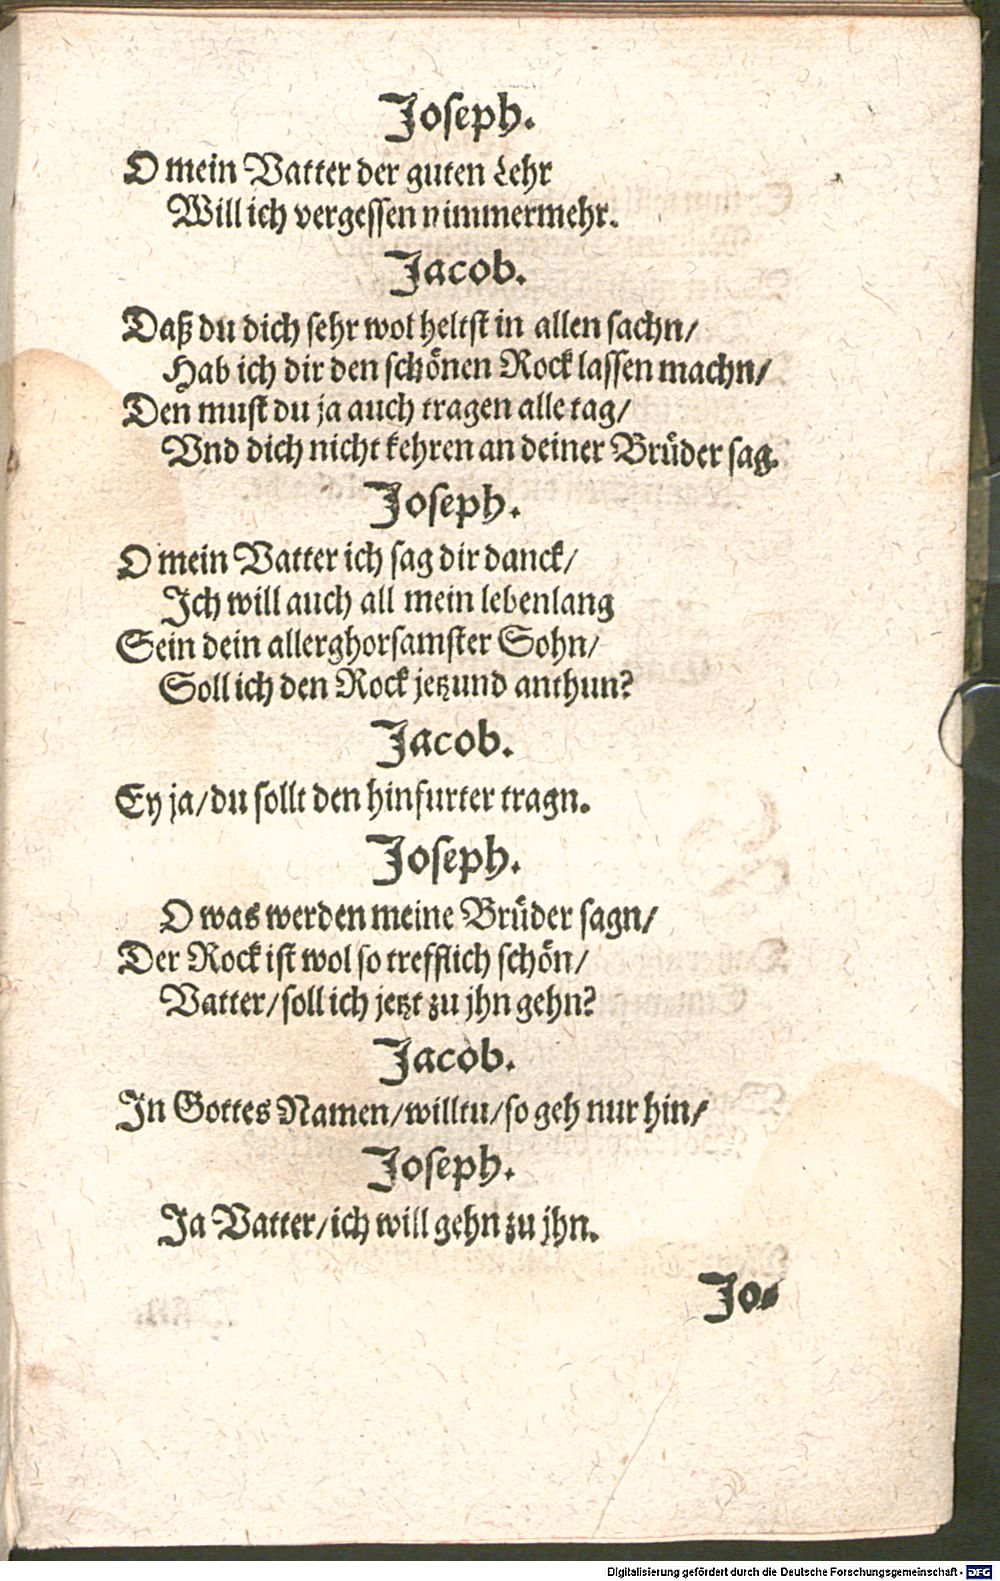 Joseph.
O mein Vatter der guten Lehr
Will ich vergessen nimmermehr.
Jacob.
Daß du dich sehr wol heltst in allen sachn/
Hab ich dir den schönen Rock lassen machn/
Den must du ja auch tragen alle tag/
Vnd dich nicht kehren an deiner Brüder sag.
Joseph.
O mein Vatter ich sag dir danck/
Ich will auch all mein lebenlang
Sein dein allerghorsamster Sohn/
Soll ich den Rock jetzund anthun?
Jacob.
Ey ja/du sollt den hinfurter tragn.
Joseph.
O was werden meine Brüder sagn/
Der Rock ist wol so trefflich schön/
Vatter/soll ich jetzt zu jhn gehn?
Jacob.
In Gottes Namen/willtu/so geh nur hin/
Joseph.
Ja Vatter/ich will gehn zu jhn.
Jo-
Digitalisierung gefördert durch die Deutsche Forschungsgemeinschaft - DFG